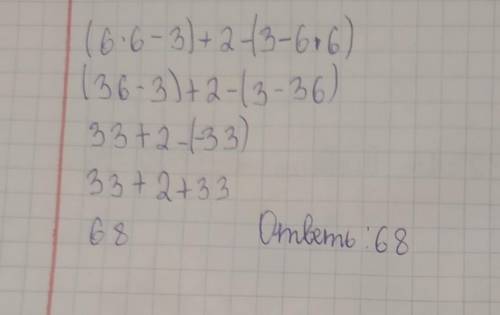 (6·6-3)+2-(3-6·6)
(36-3)+2-(3-36)
33+2-(-33)
33+2+33
68 Ответь: 68